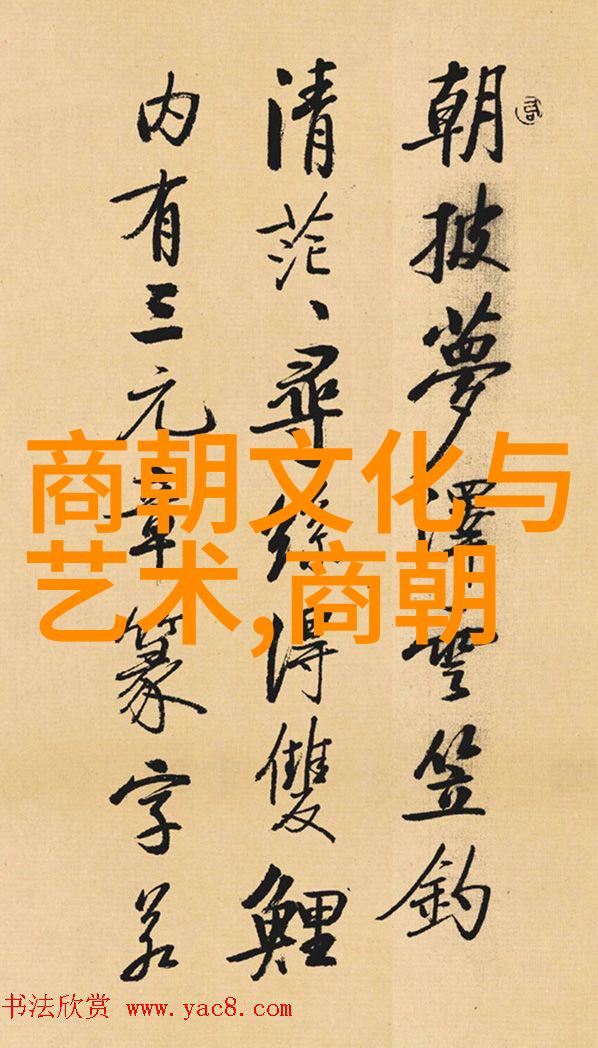 朝披夢澤雲笠釣
清茫、尋絲得雙鯉
内有三元章篆字若
商朝文化与
艺术,商朝
书法欣赏 www.yac8.com